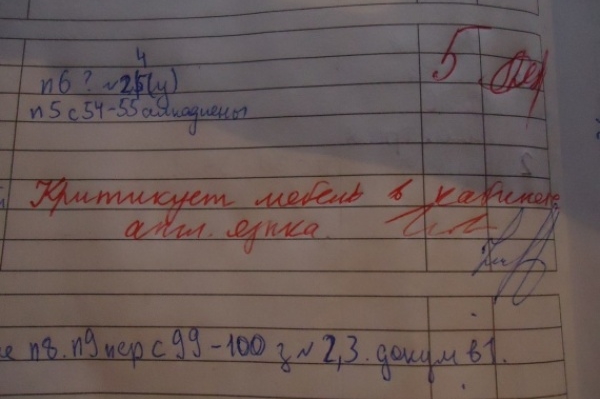 4
п6? №25(у) 5
п5 с54-55 алкадиены
Критикует мебель в кабинете
англ. языка.
п8. п9 пер с99-100 з №2,3. докум в1.